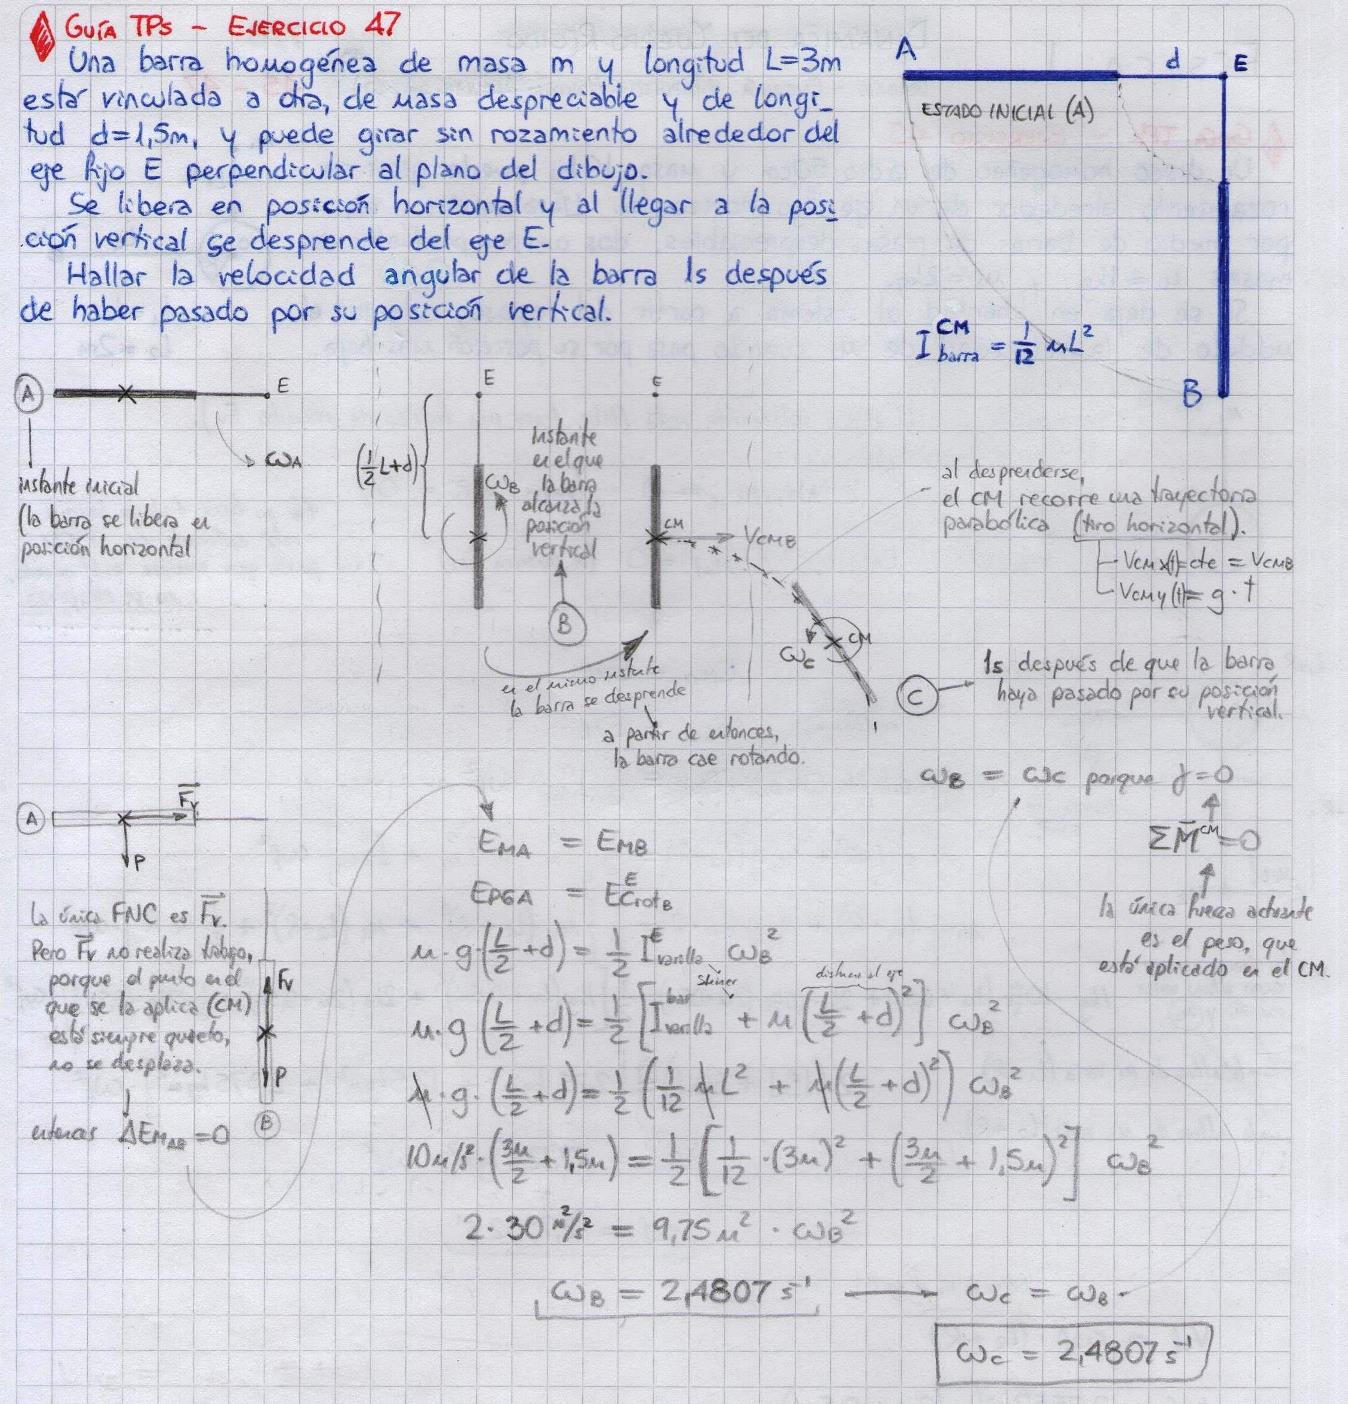 GUÍA TPS - EJERCICIO 47
Una barra homogénea de masa m y longitud L=3m
está vinculada a otra, de masa despreciable y de longi_
tud d=1,5m, y puede girar sin rozamiento alrededor del
eje fijo E perpendicular al plano del dibujo.
Se libera en posición horizontal y al llegar a la posi_
ción vertical se desprende del eje E.
Hallar la velocidad angular de la barra 1s después
de haber pasado por su posición vertical.
A
d
E
ESTADO INICIAL (A)
I barra^CM = 1/12 mL²
B
A
E
ωA
instante inicial
(la barra se libera en
posición horizontal
E
(1/2 L+d)
ωB
Instante
en el que
la barra
alcanza la
posición
vertical
B
E
CM
VCMB
en el mismo instante
la barra se desprende
a partir de entonces,
la barra cae rotando.
ωC
CM
al desprenderse,
el CM recorre una trayectoria
parabólica (tiro horizontal).
VCMx(t)=cte = VCMB
VCMy(t)= g·t
C
1s después de que la barra
haya pasado por su posición
vertical.
ωB = ωC porque γ=0
ΣM^CM=0
la única fuerza actuante
es el peso, que
está aplicado en el CM.
A
Fv
P
La única FNC es Fv.
Pero Fv no realiza trabajo,
porque el punto en el
que se la aplica (CM)
está siempre quieto,
no se desplaza.
entonces ΔEMAB=0
Fv
P
B
EMA = EMB
EPGA = ECrotB^E
m·g·(L/2+d)= 1/2 I varilla^E ωB²
Steiner
distancia al eje
m·g(L/2+d)= 1/2 [I varilla^bar + m(L/2+d)²] ωB²
m·g·(L/2+d)= 1/2 (1/12 mL² + m(L/2+d)²) ωB²
10m/s²·(3m/2+1,5m) = 1/2 [1/12·(3m)² + (3m/2+1,5m)²] ωB²
2·30 m²/s² = 9,75m²·ωB²
ωB = 2,4807 s⁻¹
ωC = ωB
ωC = 2,4807 s⁻¹